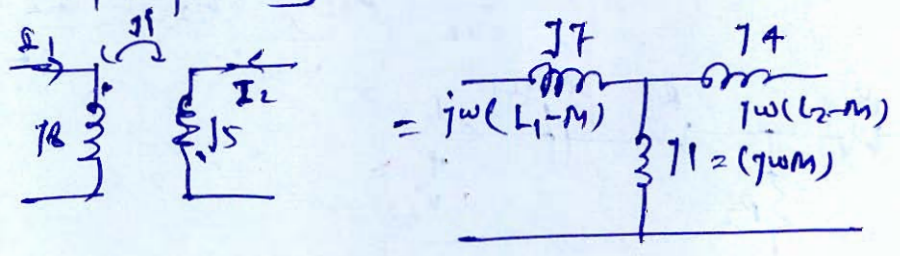 J1
I1
I2
J8
J5
=
J7
J4
jw(L1-M)
jw(L2-M)
J1 = (jwM)